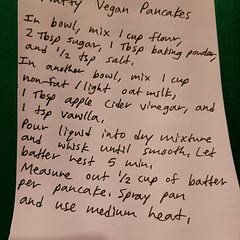 Fluffy Vegan Pancakes
In bowl, mix 1 cup flour,
2 Tbsp sugar, 1 Tbsp baking powder,
and 1/2 tsp salt.
In another bowl, mix 1 cup
non-fat/light oat milk,
1 Tbsp apple cider vinegar, and
1 tsp vanilla.
Pour liquid into dry mixture
and whisk until smooth. Let
batter rest 5 min.
Measure out 1/2 cup of batter
per pancake. Spray pan
and use medium heat.